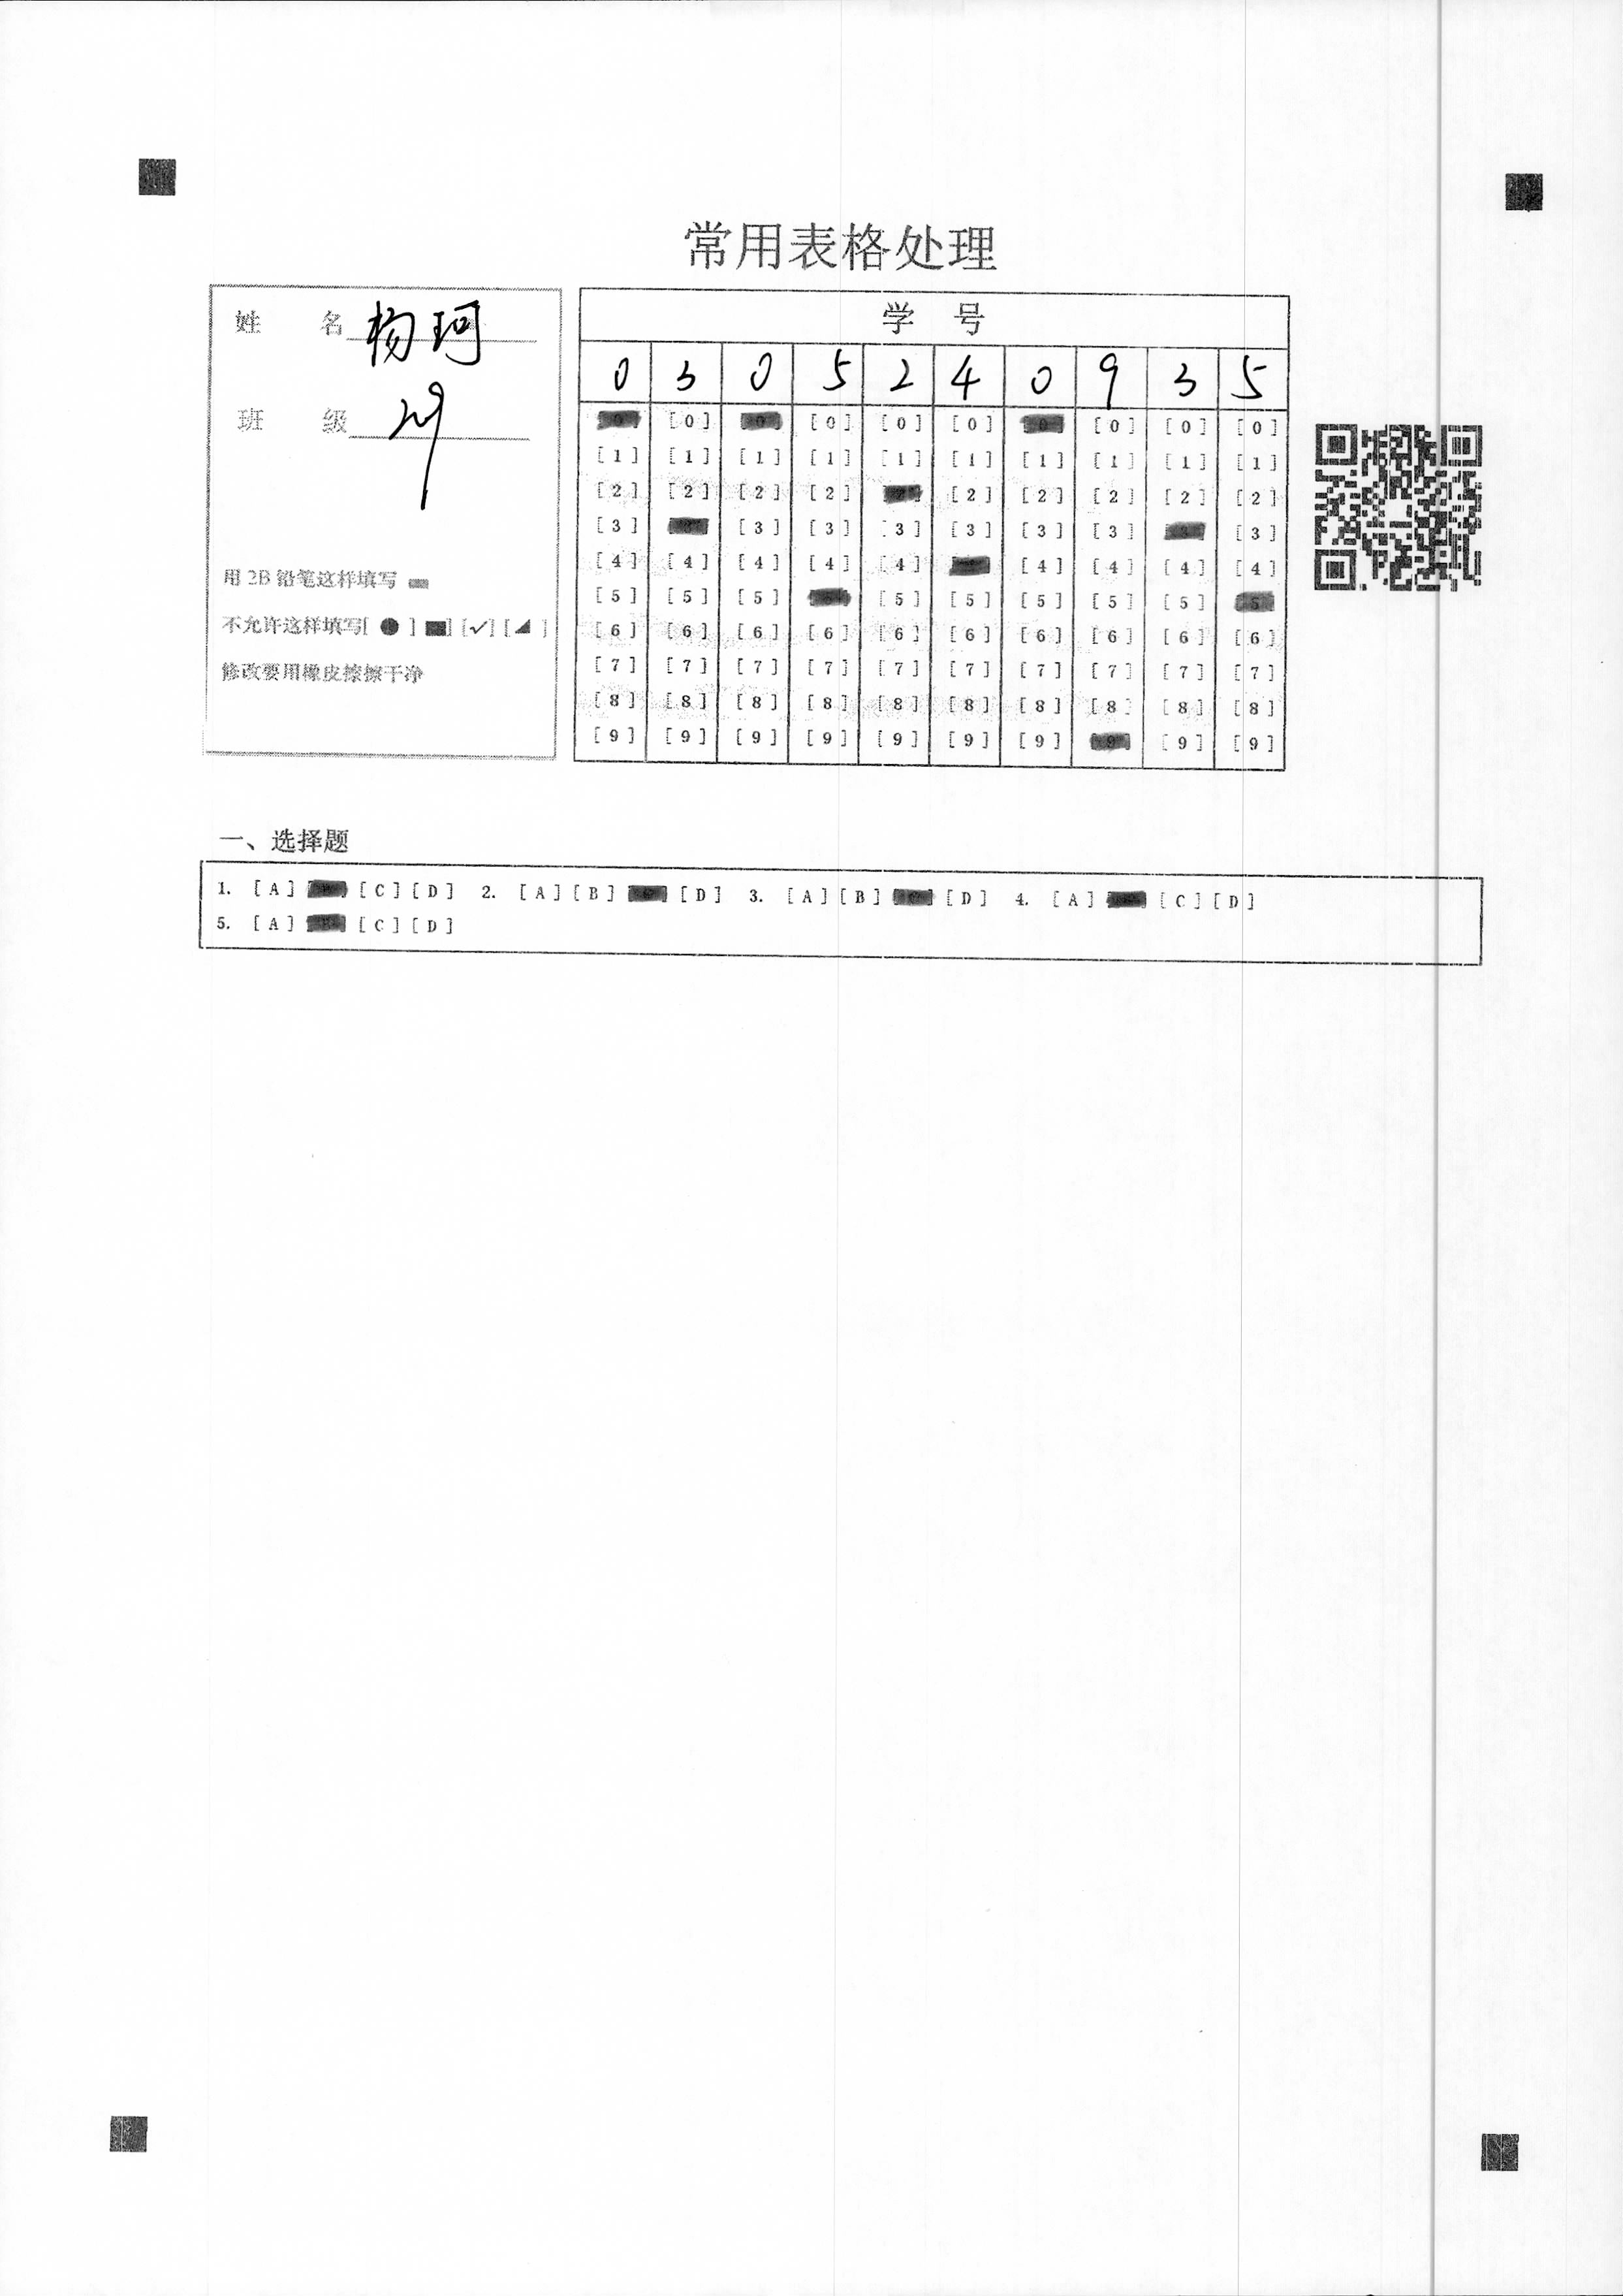 常用表格处理
姓 名 杨珂
班 级
用 2B 铅笔这样填写
不允许这样填写[ ● ] ■] [✓] [◢ ]
修改要用橡皮擦擦干净
学 号
0 3 0 5 2 4 0 9 3 5
[0] [0] [0] [0] [0] [0] [0] [0] [0] [0]
[1] [1] [1] [1] [1] [1] [1] [1] [1] [1]
[2] [2] [2] [2] [2] [2] [2] [2] [2] [2]
[3] [3] [3] [3] [3] [3] [3] [3] [3] [3]
[4] [4] [4] [4] [4] [4] [4] [4] [4]
[5] [5] [5] [5] [5] [5] [5] [5] [5]
[6] [6] [6] [6] [6] [6] [6] [6] [6] [6]
[7] [7] [7] [7] [7] [7] [7] [7] [7] [7]
[8] [8] [8] [8] [8] [8] [8] [8] [8] [8]
[9] [9] [9] [9] [9] [9] [9] [9] [9] [9]
一、选择题
1. [A] [C] [D] 2. [A] [B] [D] 3. [A] [B] [D] 4. [A] [C] [D]
5. [A] [C] [D]